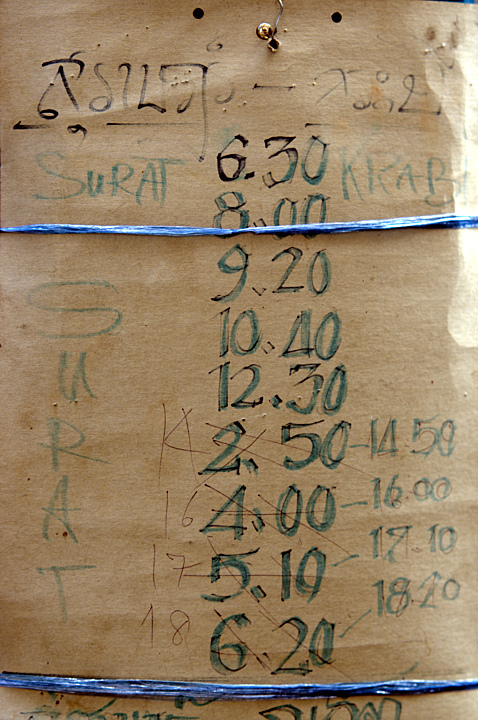 สุราษฎร์ — กระบี่
SURAT 6.30 KRABI
8.00
9.20
10.40
12.30
14 2.50 - 14.50
16 4.00 - 16.00
17 5.10 - 17.10
18 6.20 - 18.20
SURAT